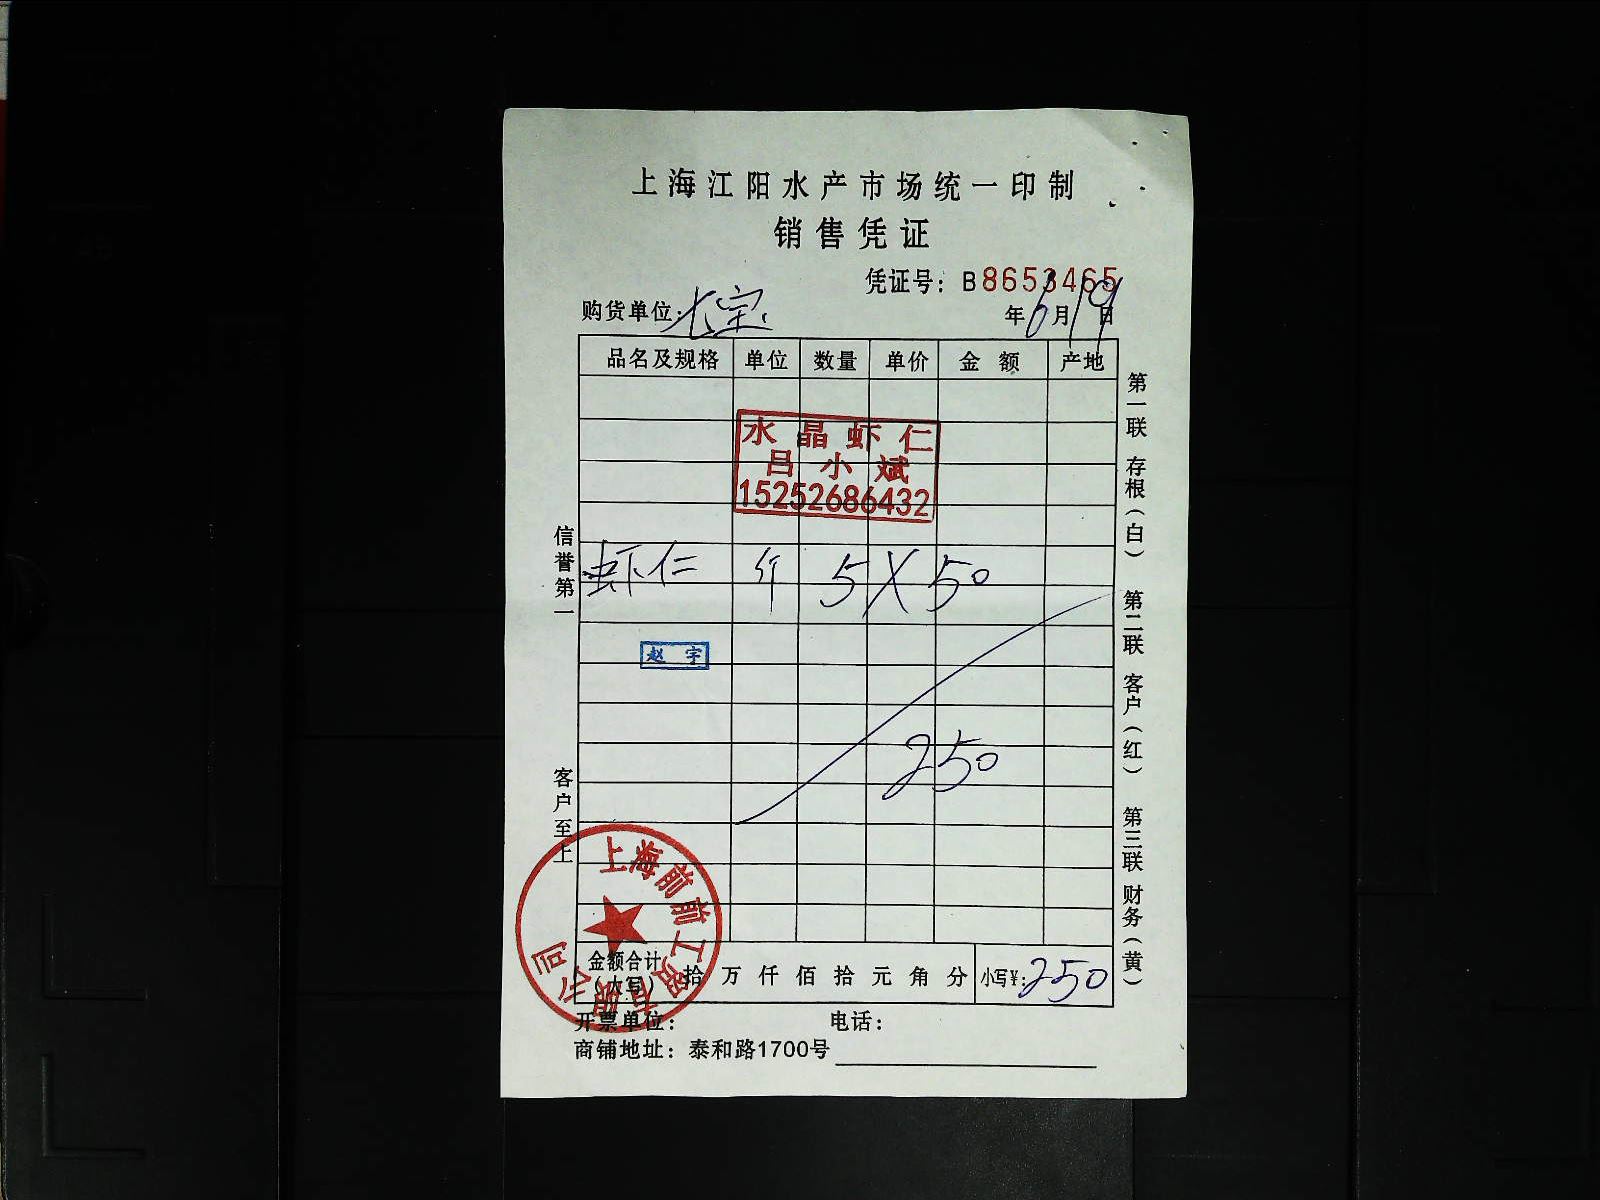 上海江阳水产市场统一印制
销售凭证
凭证号：B8653465
购货单位：七宝
年6月19日
品名及规格 单位 数量 单价 金额 产地
水晶虾仁
吕小斌
15252686432
虾仁 斤 5X50
赵宇
250
金额合计（大写） 拾万仟佰拾元角分 小写¥：250
开票单位： 电话：
商铺地址：泰和路1700号
信誉第一 客户至上
第一联 存根（白） 第二联 客户（红） 第三联 财务（黄）
上海前前工贸有限公司